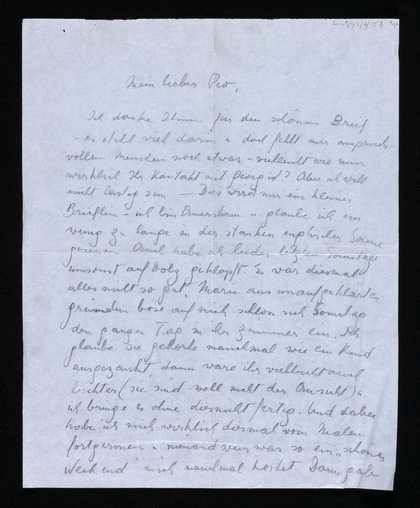 Mein lieber Pio,
Ich danke Ihnen für den schönen Brief
- es steht viel darin u doch fehlt mir anspruchs-
vollen Menschen noch etwas - vielleicht wie nun
wirklich Ihr Kontakt mit Georg ist? Aber ich will
nicht lästig sein — Dies wird nur ein kleines
Brieflein - ich bin Amersham u glaube ich ein
wenig zu lange in der starken englischen Sonne
gesessen. Auch habe ich leider letzten Sonntag
umsonst auf Holz geklopft. Es war diesmal
alles nicht so gut. Marie aus unaufgeklärten
gründen böse auf mich schloss sich Sonntag
den ganzen Tag in ihr Zimmer ein. Ich
glaube sie gehörte manchmal wie ein Kind
ausgezankt dann wäre ihr vielleicht auch
leichter (sie sind wohl nicht der Ansicht) u
ich bringe es ohne diesnicht fertig. Und dabei
habe ich mich wirklich diesmal vom Malen
fortgerissen u niemand weiss was so ein „schönes
Weekend" mich manchmal kostet Dann gab